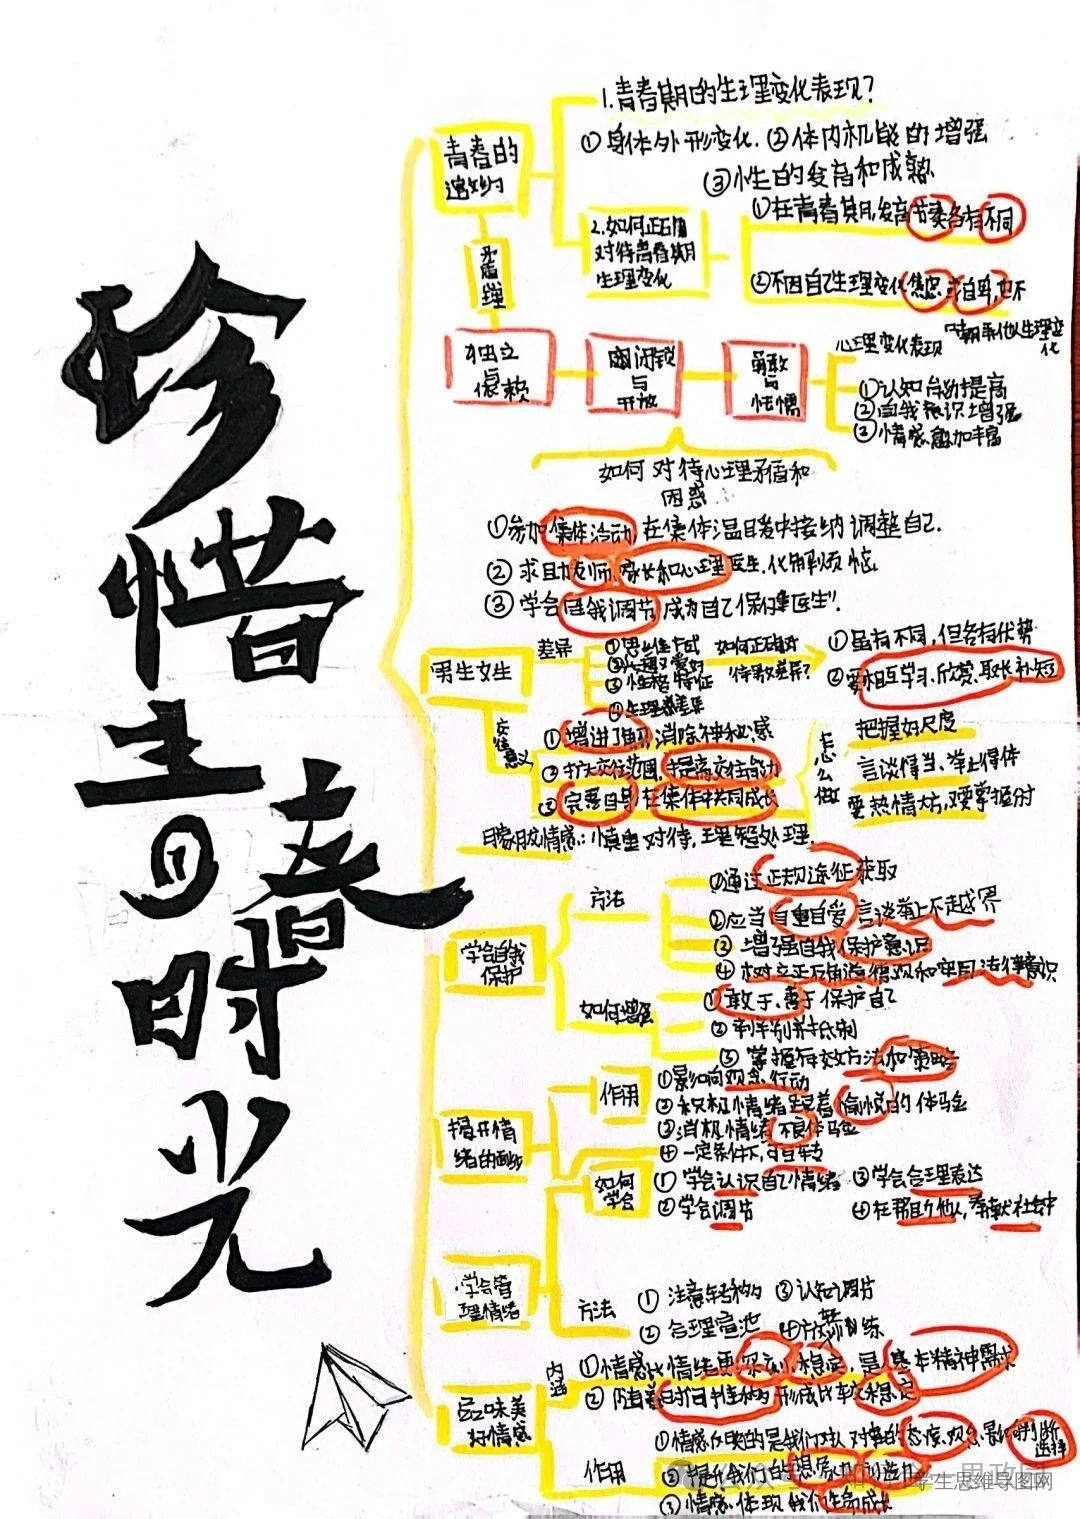 珍惜青春时光
青春的
邀约
1.青春期的生理变化表现?
①身体外形变化.②体内机能的增强
③性的发育和成熟
2.如何正确
对待青春期
生理变化
①在青春期,发育节奏各有不同
②不因自己生理变化焦虑或自卑,也不
嘲弄他人生理变
化
矛盾
心理
独立
与
依赖
闭锁
与
开放
勇敢
与
怯懦
心理变化表现
①认知能力提高
②自我意识增强
③情感愈加丰富
如何对待心理矛盾和
困惑
①参加集体活动,在集体温暖中接纳调整自己.
②求助老师、家长和心理医生,化解烦恼
③学会自我调节,成为自己"保健医生".
男生女生
差异
①思维方式
②兴趣爱好
③性格特征
④生理差异
如何正确对
待男女差异?
①虽有不同,但各有优势
②要相互学习、欣赏、取长补短
交往
意义
①增进了解,消除神秘感
②扩大交往范围,提高交往能力
③完善自身,在集体中共同成长
怎么做
把握好尺度
言谈得当、举止得体
要热情大方,又要掌握分寸
朦胧情感:慎重对待,理智处理
学会自我
保护
方法
①通过正规途径获取
②应当自重自爱,言谈举止不越界
③增强自我保护意识
④树立正确道德观和牢固法律意识
如何增强
①敢于、善于保护自己
②判别并抵制
③掌握有效方法和策略
揭开情
绪的面纱
作用
①影响观念、行动
②积极情绪跟着愉悦的体验
③消极情绪不良体验
④一定条件下,可互转
如何
学会
①学会认识自己情绪 ③学会合理表达
②学会调节 ④在帮助他人,奉献社会中
学会管
理情绪
方法
①注意转移 ③认知调节
②合理宣泄 ④放松训练
品味美
好情感
内涵
①情感比情绪更深刻、稳定,是基本精神需求
②随着时间推移形成比较稳定
作用
①情感反映的是我们对人对事的态度、观念,影响判断
选择
②提升我们的想象力、创造力
③情感体现我们生命成长
学生思维导图网